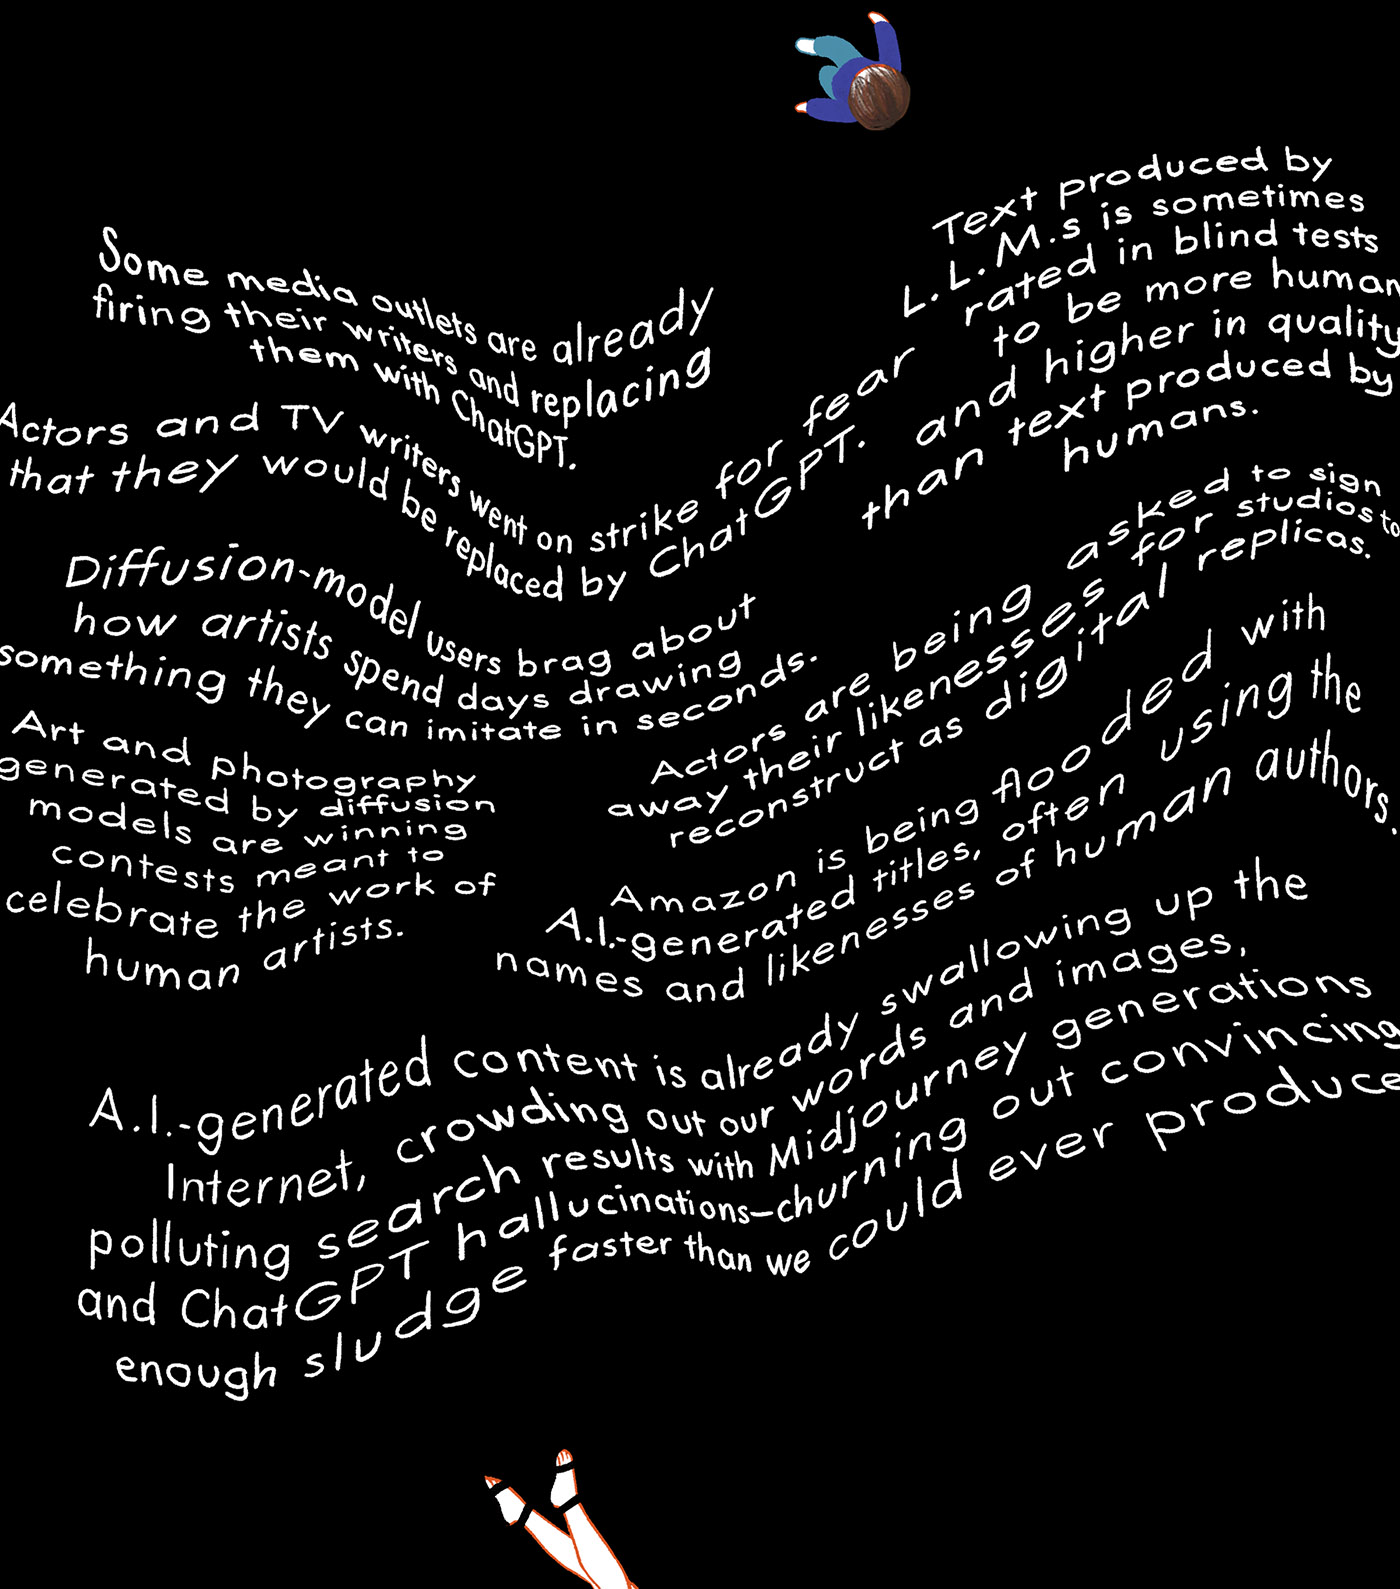 Some media outlets are already
firing their writers and replacing
them with ChatGPT.
Text produced by
L.L.M.s is sometimes
rated in blind tests
to be more human
and higher in quality
than text produced by
humans.
Actors and TV writers went on strike for fear
that they would be replaced by ChatGPT.
Diffusion-model users brag about
how artists spend days drawing
something they can imitate in seconds.
Actors are being asked to sign
away their likenesses for studios to
reconstruct as digital replicas.
Art and photography
generated by diffusion
models are winning
contests meant to
celebrate the work of
human artists.
Amazon is being flooded with
A.I.-generated titles, often using the
names and likenesses of human authors.
A.I.-generated content is already swallowing up the
Internet, crowding out our words and images,
polluting search results with Midjourney generations
and ChatGPT hallucinations—churning out convincing
enough sludge faster than we could ever produce